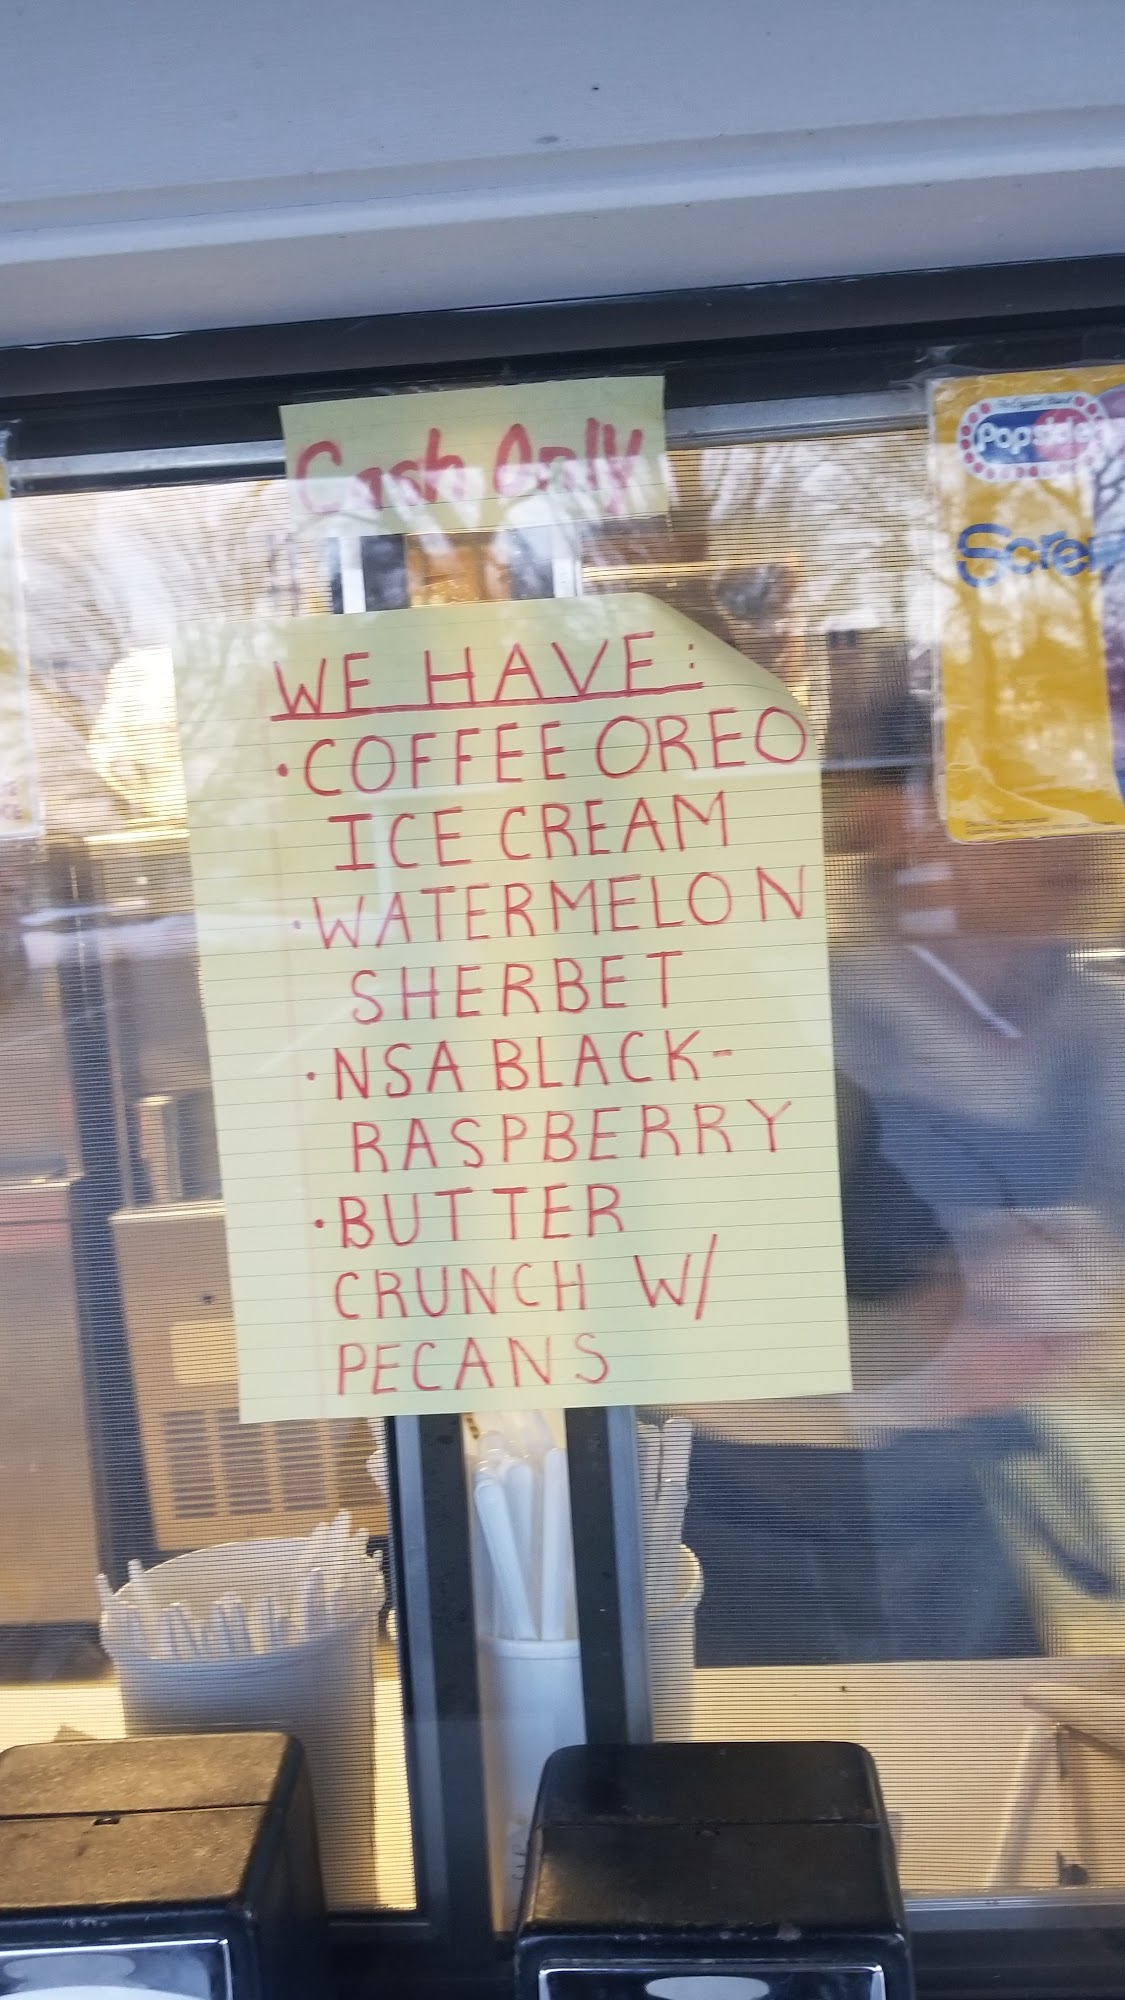 Cash Only
The Original Brand
Popsicle
Scre
WE HAVE:
•COFFEE OREO
ICE CREAM
•WATERMELON
SHERBET
•NSA BLACK-
RASPBERRY
•BUTTER
CRUNCH W/
PECANS